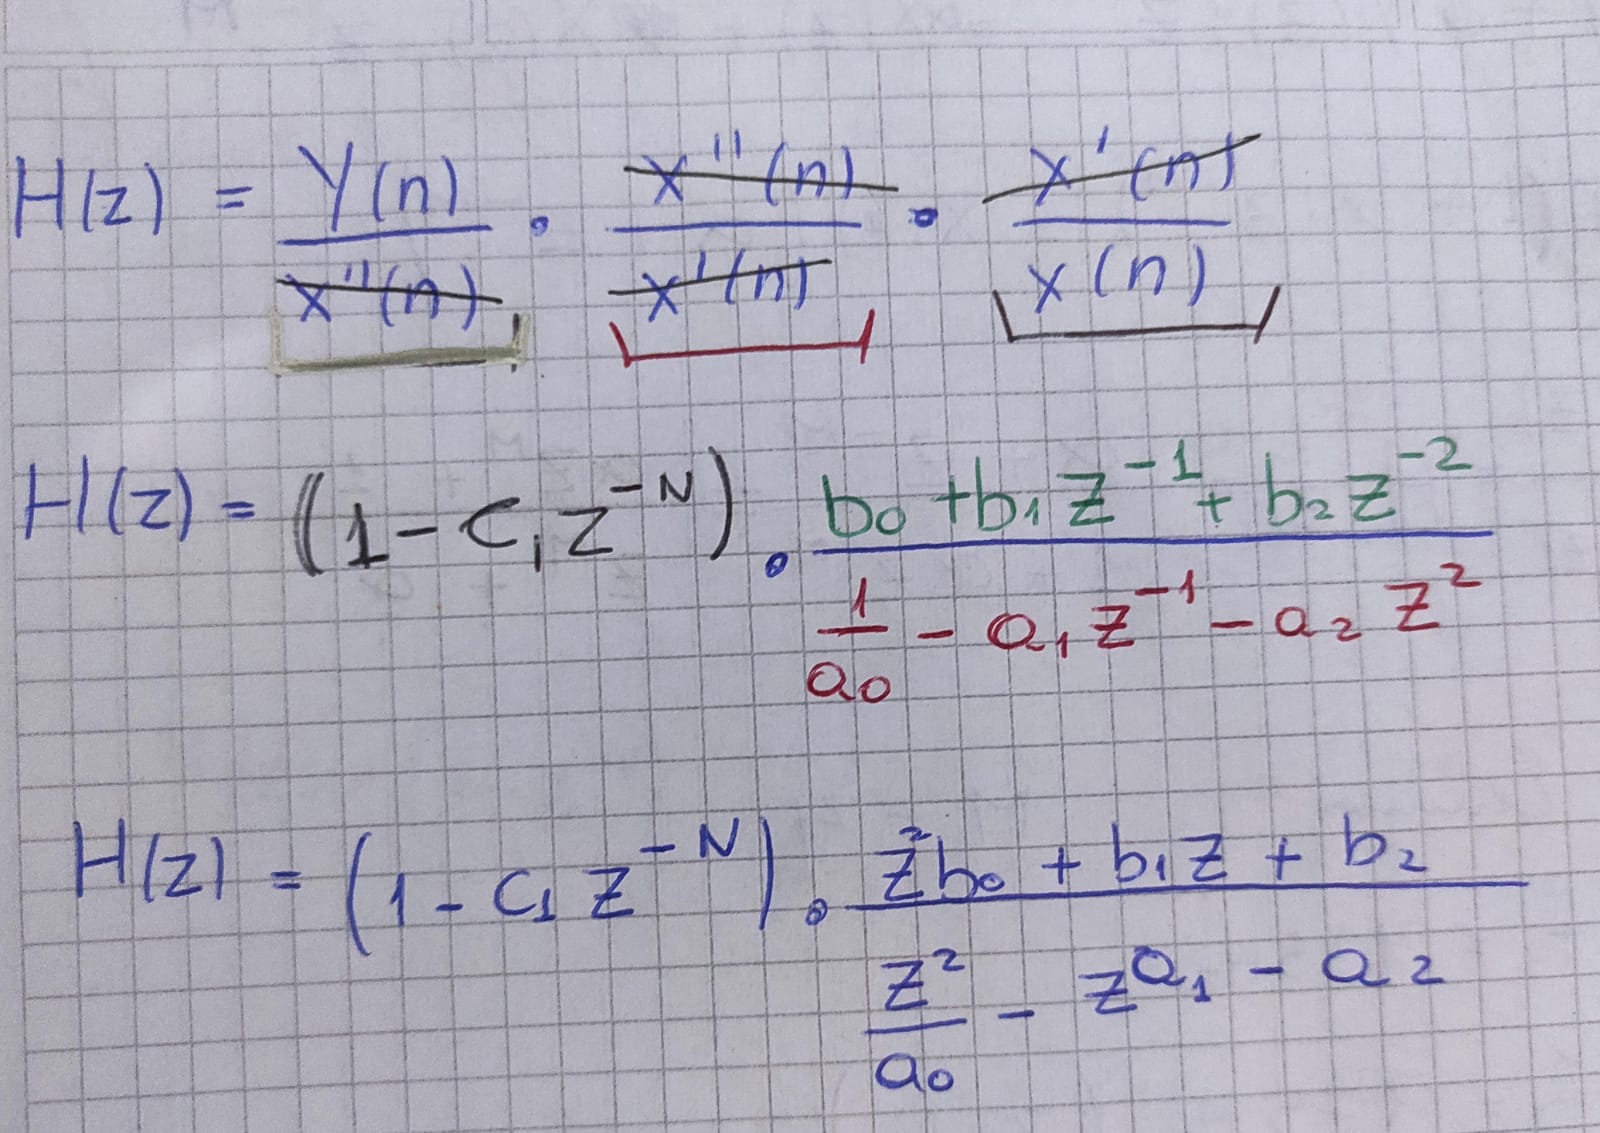 H(z) = Y(n)/x''(n) · x''(n)/x'(n) · x'(n)/x(n)
H(z) = (1 - c₁z⁻ᴺ) · (b₀ + b₁z⁻¹ + b₂z⁻²)/(1/a₀ - a₁z⁻¹ - a₂z²)
H(z) = (1 - c₁z⁻ᴺ) · (z²b₀ + b₁z + b₂)/(z²/a₀ - za₁ - a₂)